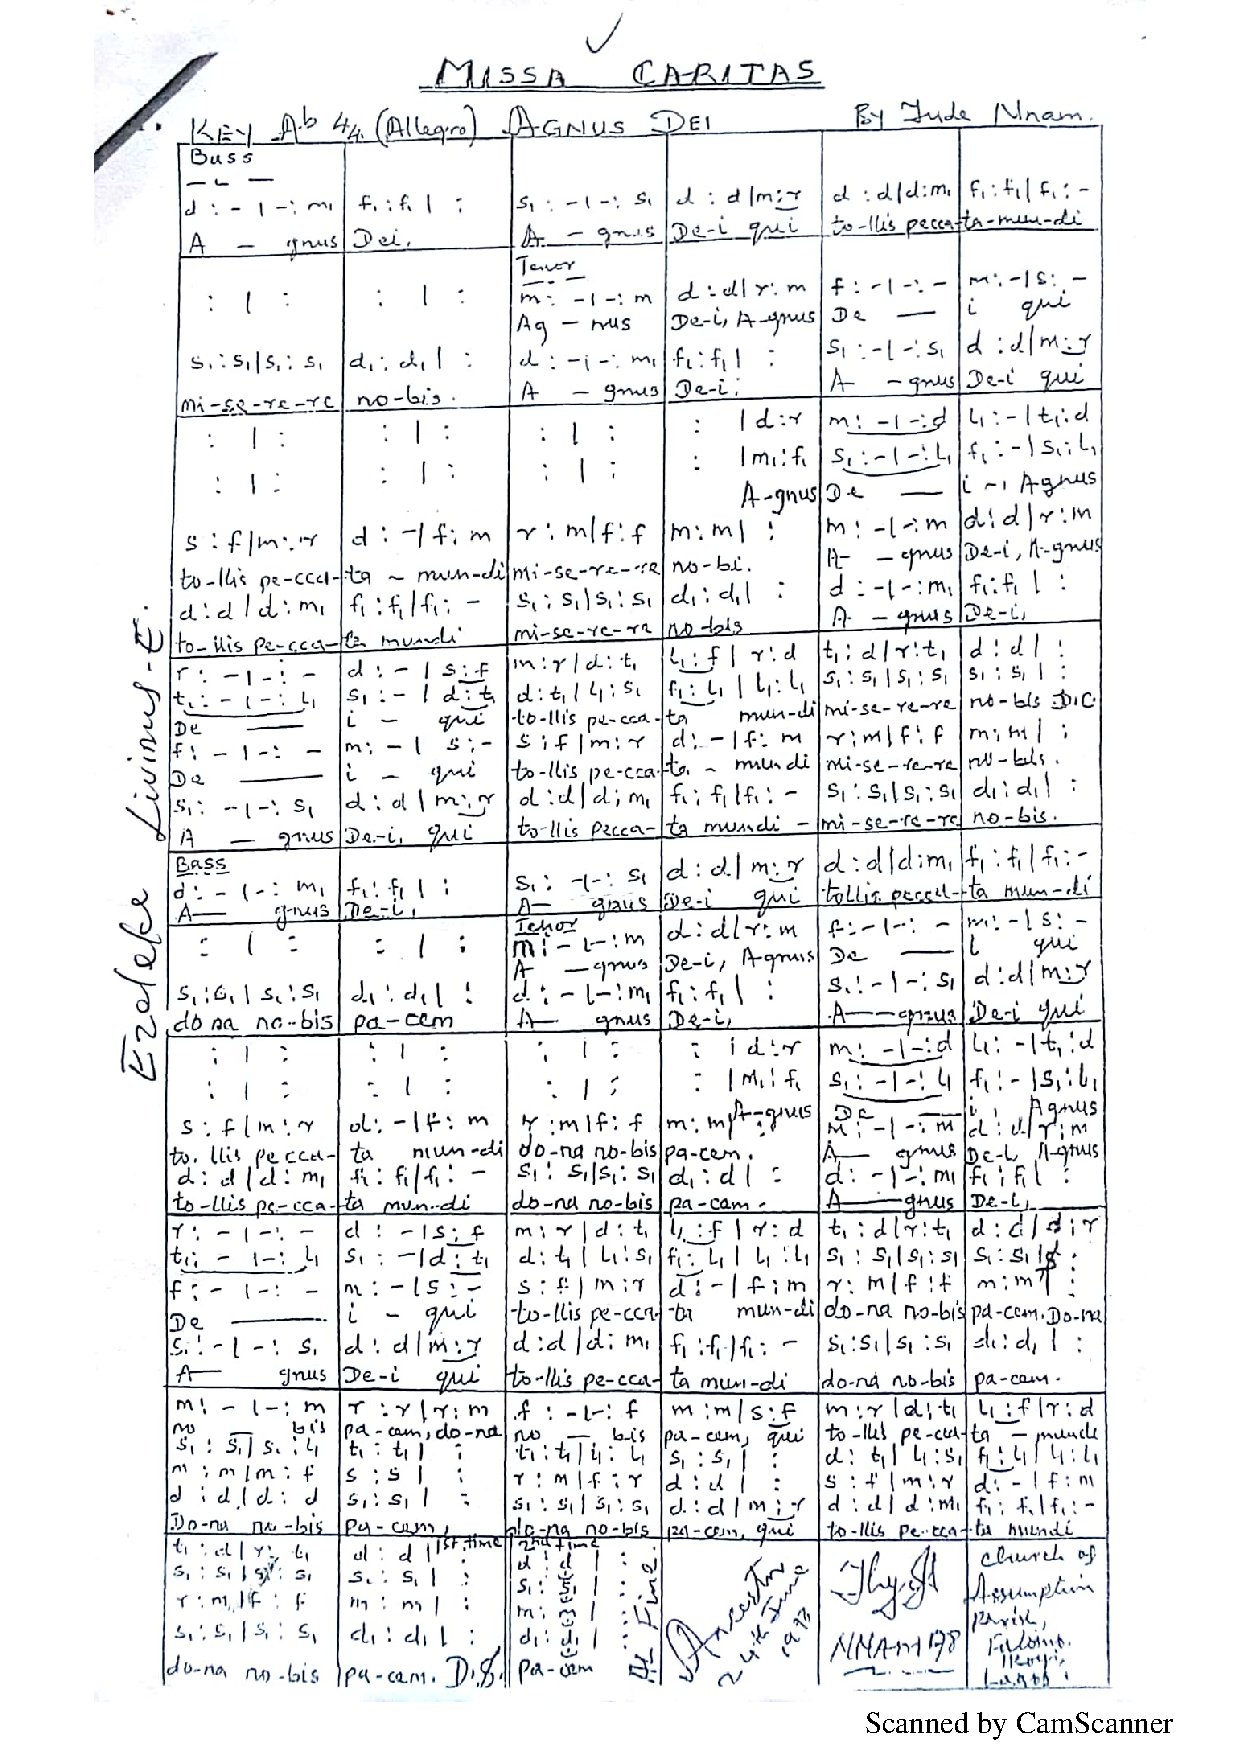 MISSA CARITAS
KEY Ab 4/4 (Allegro) AGNUS DEI By Jude Nnam.
Bass
d : - | - : m₁ f₁ : f₁ | : s₁ : - | - : s₁ d : d | m : r d : d | d : m₁ f₁ : f₁ | f₁ : -
A - gnus Dei, A - gnus De-i qui to-llis pecca-ta-mun-di
Tenor
: | : : | : m : - | - : m d : d | r : m f : - | - : - m : - | s : -
Ag - nus De-i, A-gnus De — i qui
s₁ : s₁ | s₁ : s₁ d₁ : d₁ | : d : - | - : m₁ f₁ : f₁ | : s₁ : - | - : s₁ d : d | m : r
mi-se-re-re no-bis. A - gnus De-i, A - gnus De-i qui
: | : : | : : | : : | d : r m : - | - : d l₁ : - | t₁ : d
: | : : | : : | : : | m₁ : f₁ s₁ : - | - : l₁ f₁ : - | s₁ : l₁
A-gnus De — i - , Agnus
s : f | m : r d : - | f : m r : m | f : f m : m | : m : - | - : m d : d | r : m
to-llis pe-cca-ta - mun-di mi-se-re-re no-bi. A - gnus De-i, A-gnus
d : d | d : m₁ f₁ : f₁ | f₁ : - s₁ : s₁ | s₁ : s₁ d₁ : d₁ | : d : - | - : m₁ f₁ : f₁ | :
to-llis pe-cca-ta mundi mi-se-re-re no-bis A - gnus De-i,
r : - | - : - d : - | s : f m : r | d : t₁ l₁ : f | r : d t₁ : d | r : t₁ d : d | :
t₁ : - | - : l₁ s₁ : - | d : t₁ d : t₁ | l₁ : s₁ f₁ : l₁ | l₁ : l₁ s₁ : s₁ | s₁ : s₁ s₁ : s₁ | :
De — i - qui to-llis pe-cca-ta mun-di mi-se-re-re no-bis D.C
f : - | - : - m : - | s : - s : f | m : r d : - | f : m r : m | f : f m : m | :
De — i - qui to-llis pe-cca-ta - mundi mi-se-re-re no-bis.
s₁ : - | - : s₁ d : d | m : r d : d | d : m₁ f₁ : f₁ | f₁ : - s₁ : s₁ | s₁ : s₁ d₁ : d₁ | :
A - gnus De-i, qui to-llis pecca-ta mundi - mi-se-re-re no-bis.
Bass
d : - | - : m₁ f₁ : f₁ | : s₁ : - | - : s₁ d : d | m : r d : d | d : m₁ f₁ : f₁ | f₁ : -
A — gnus De-i, A — gnus De-i qui tollis pecca-ta mun-di
Tenor
: | : : | : m : - | - : m d : d | r : m f : - | - : - m : - | s : -
A — gnus De-i, Agnus De — i qui
s₁ : s₁ | s₁ : s₁ d₁ : d₁ | : d : - | - : m₁ f₁ : f₁ | : s₁ : - | - : s₁ d : d | m : r
dona no-bis pa-cem A — gnus De-i, A — gnus De-i qui
: | : : | : : | : : | d : r m : - | - : d l₁ : - | t₁ : d
: | : : | : : | : : | m₁ : f₁ s₁ : - | - : l₁ f₁ : - | s₁ : l₁
A-gnus De — i, Agnus
s : f | m : r d : - | f : m r : m | f : f m : m | m : - | - : m d : d | r : m
to-llis pe cca-ta mun-di do-na no-bis pa-cem. A — gnus De-i, A-gnus
d : d | d : m₁ f₁ : f₁ | f₁ : - s₁ : s₁ | s₁ : s₁ d₁ : d | : d : - | - : m₁ f₁ : f₁ | :
to-llis pe-cca-ta mun-di do-na no-bis pa-cam. A — gnus De-i,
r : - | - : - d : - | s : f m : r | d : t₁ l₁ : f | r : d t₁ : d | r : t₁ d : d | d : r
t₁ : - | - : l₁ s₁ : - | d : t₁ d : t₁ | l₁ : s₁ f₁ : l₁ | l₁ : l₁ s₁ : s₁ | s₁ : s₁ s₁ : s₁ | :
f : - | - : - m : - | s : - s : f | m : r d : - | f : m r : m | f : f m : m | :
De — i - qui to-llis pe-cca-ta mun-di do-na no-bis pa-cem. Do-na
s₁ : - | - : s₁ d : d | m : r d : d | d : m₁ f₁ : f₁ | f₁ : - s₁ : s₁ | s₁ : s₁ d₁ : d₁ | :
A — gnus De-i qui to-llis pe-cca-ta mun-di do-na no-bis pa-cam.
m : - | - : m r : r | r : m f : - | - : f m : m | s : f m : r | d : t₁ l₁ : f | r : d
no — bis pa-cam, do-na no — bis pa-cem, qui to-llis pe-cca-ta - munde
s₁ : s₁ | s₁ : l₁ t₁ : t₁ | : t₁ : t₁ | l₁ : l₁ s₁ : s₁ | : d : t₁ | l₁ : s₁ f₁ : l₁ | l₁ : l₁
m : m | m : f s : s | : r : m | f : r d : d | : s : f | m : r d : - | f : m
d : d | d : d s₁ : s₁ | : s₁ : s₁ | s₁ : s₁ d : d | m : r d : d | d : m₁ f₁ : f₁ | f₁ : -
Do-na no-bis pa-cem, do-na no-bis pa-cem, qui to-llis pe-cca-ta mundi
t₁ : d | r : t₁ d : d | 1st time 2nd time d : d | :
s₁ : s₁ | s₁ : s₁ s₁ : s₁ | : s₁ : s₁ | :
r : m | f : f m : m | : m : m | :
s₁ : s₁ | s₁ : s₁ d₁ : d₁ | : d₁ : d₁ | :
do-na no-bis pa-cem. D.S. pa-cem
Fine.
NNAM 178
Church of
Assumption
parish,
Lagos.
Ezeleke Livinus. E.
Scanned by CamScanner